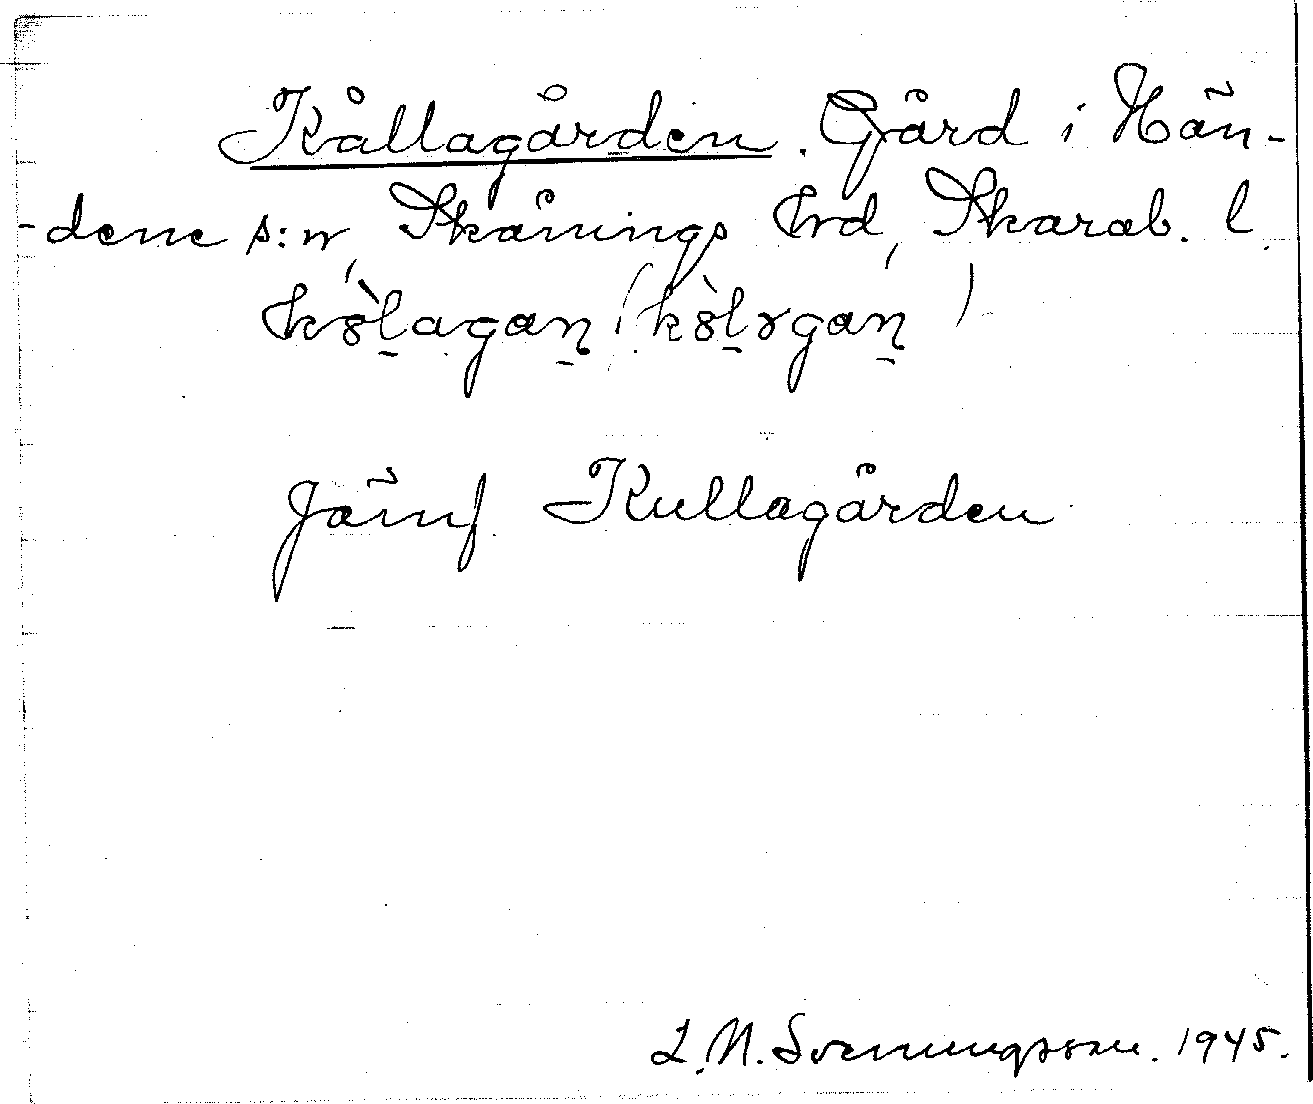 Kållagården. Gård i Hän-
-dene s:n, Skånings hd, Skarab. l.
kȣ̀l̠agan̠ (kȣ̀l̠ɤgan̠)
Jämf Kullagården
L. N. Svenungsson. 1945.